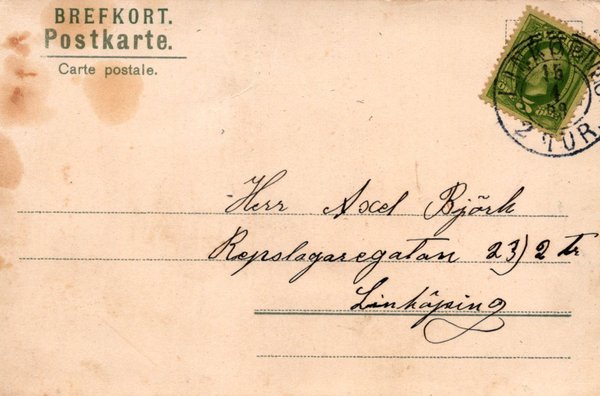 BREFKORT.
Postkarte.
Carte postale.
LINKÖPING
15
2 TUR.
Herr Axel Björk
Repslagaregatan 23) 2 tr
Linköping